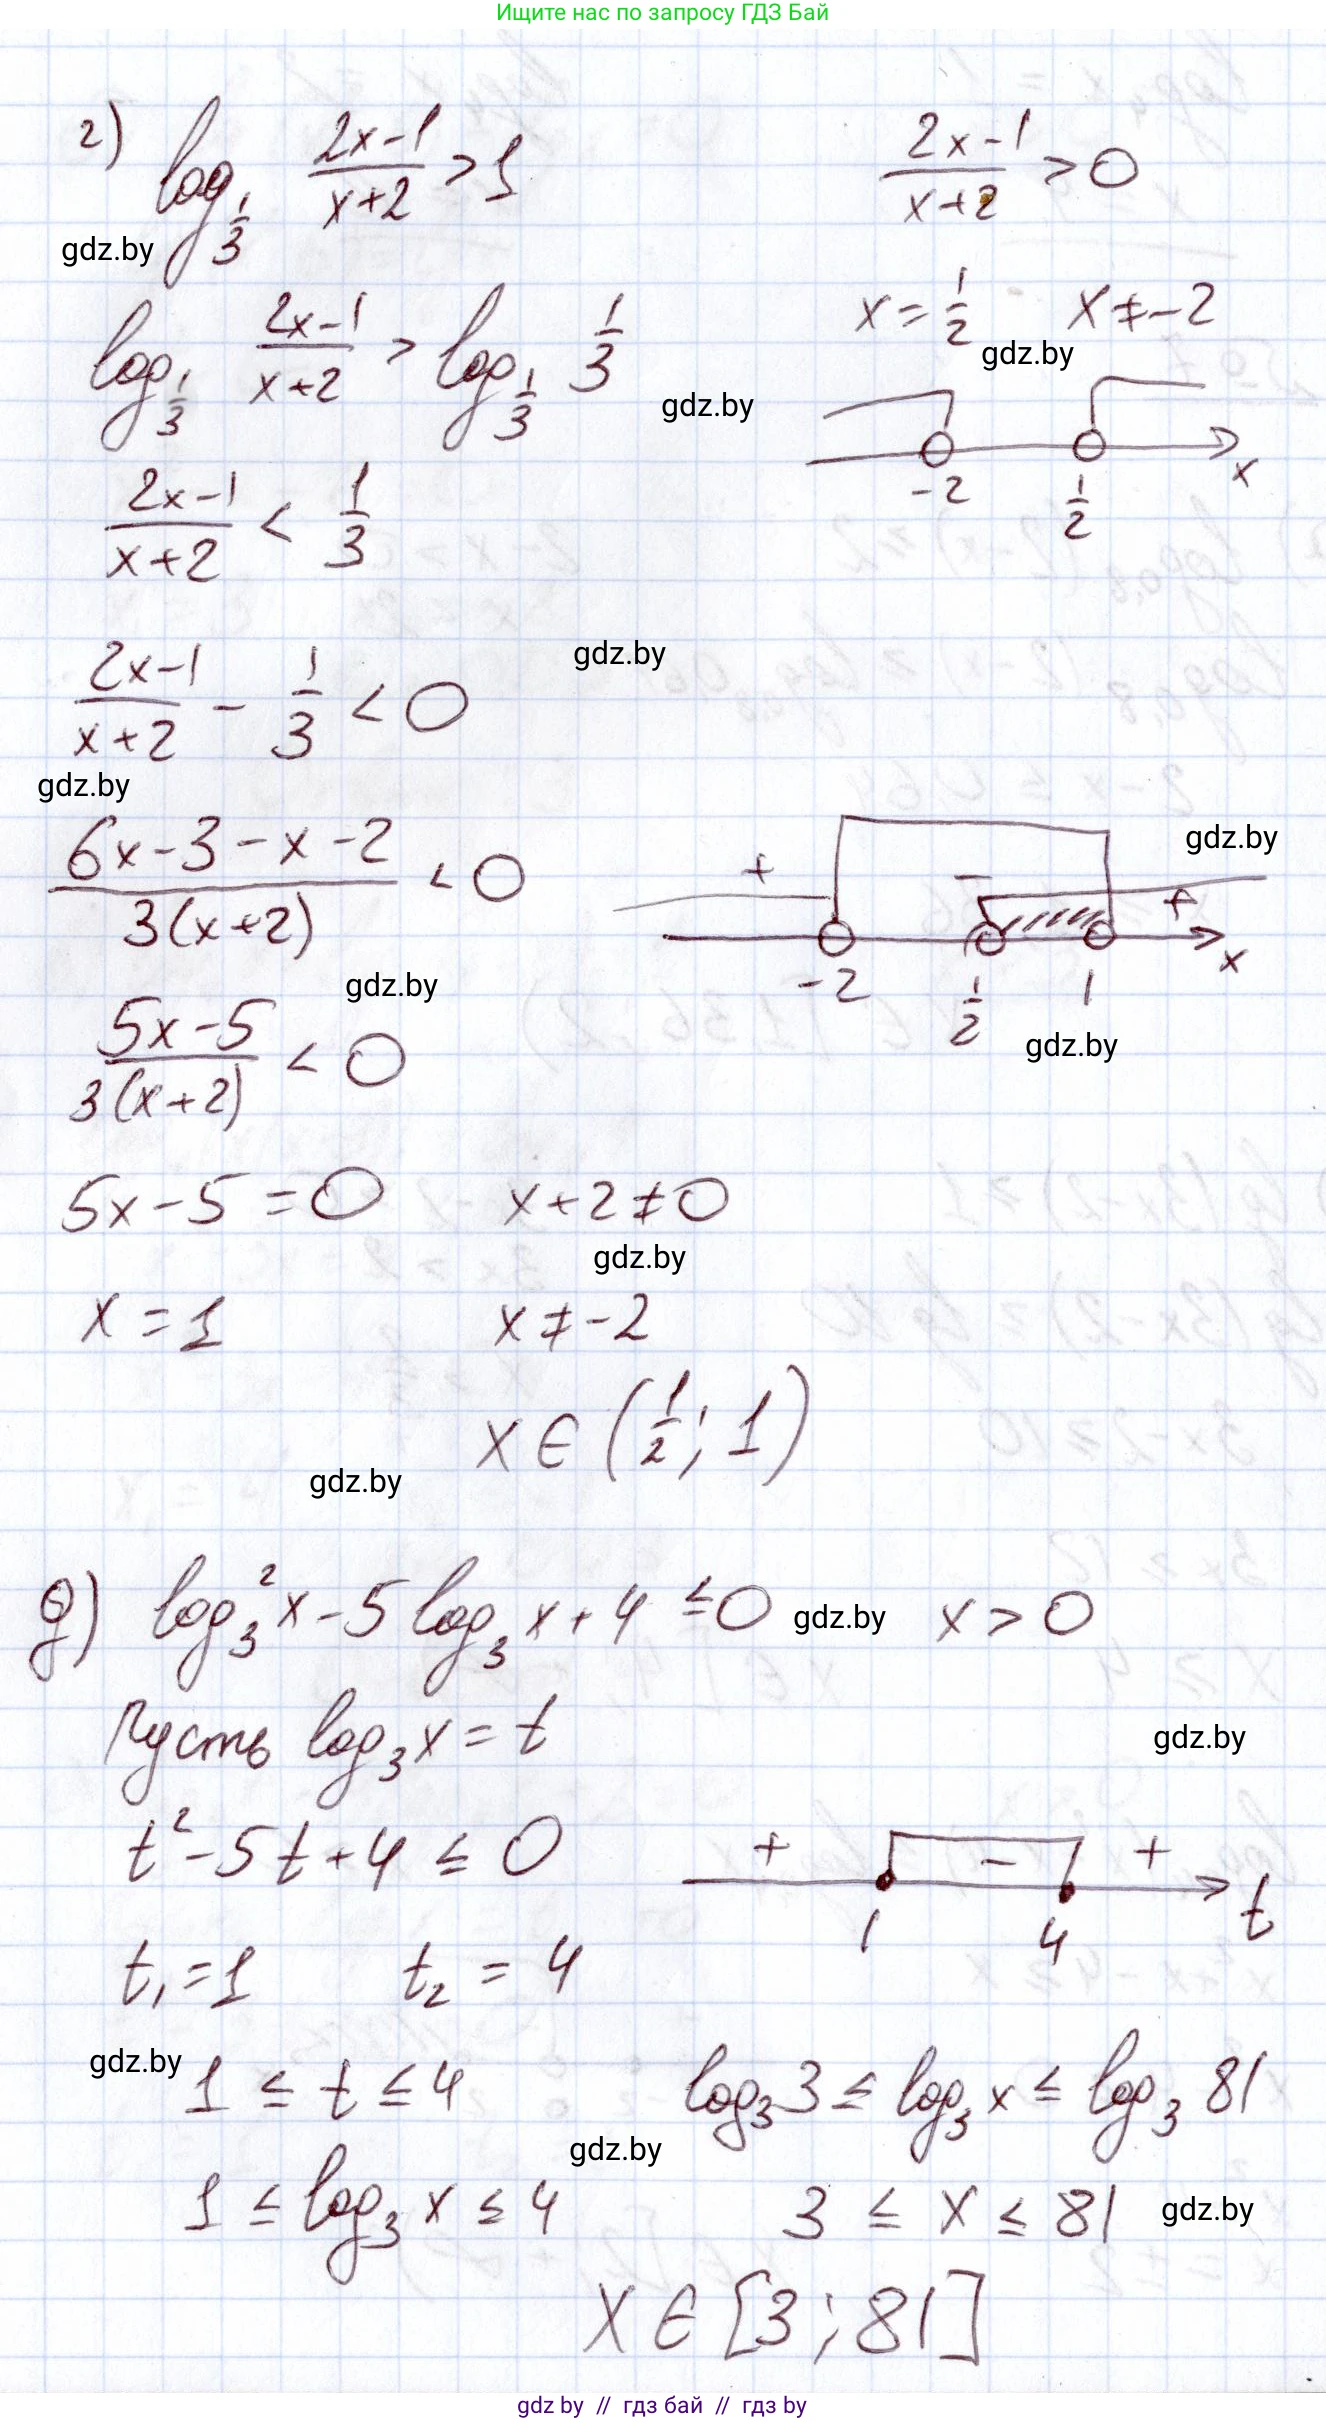 Ищите нас по запросу ГДЗ Бай
г) log_{1/3} (2x-1)/(x+2) > 1
(2x-1)/(x+2) > 0
gdz.by
log_{1/3} (2x-1)/(x+2) > log_{1/3} 1/3
x = 1/2 x ≠ -2
gdz.by
gdz.by
-2 1/2 x
(2x-1)/(x+2) < 1/3
gdz.by
(2x-1)/(x+2) - 1/3 < 0
gdz.by
(6x-3-x-2)/(3(x+2)) < 0
gdz.by
+ - +
-2 1/2 1 x
gdz.by
gdz.by
(5x-5)/(3(x+2)) < 0
5x-5=0 x+2≠0
gdz.by
x=1 x≠-2
x ∈ (1/2; 1)
gdz.by
д) log_3^2 x - 5 log_3 x + 4 ≤ 0 gdz.by x > 0
Пусть log_3 x = t
gdz.by
t^2 - 5t + 4 ≤ 0
+ - +
1 4 t
t_1 = 1 t_2 = 4
gdz.by
1 ≤ t ≤ 4
log_3 3 ≤ log_3 x ≤ log_3 81
gdz.by
1 ≤ log_3 x ≤ 4
3 ≤ x ≤ 81 gdz.by
x ∈ [3; 81]
gdz by // гдз бай // гдз by